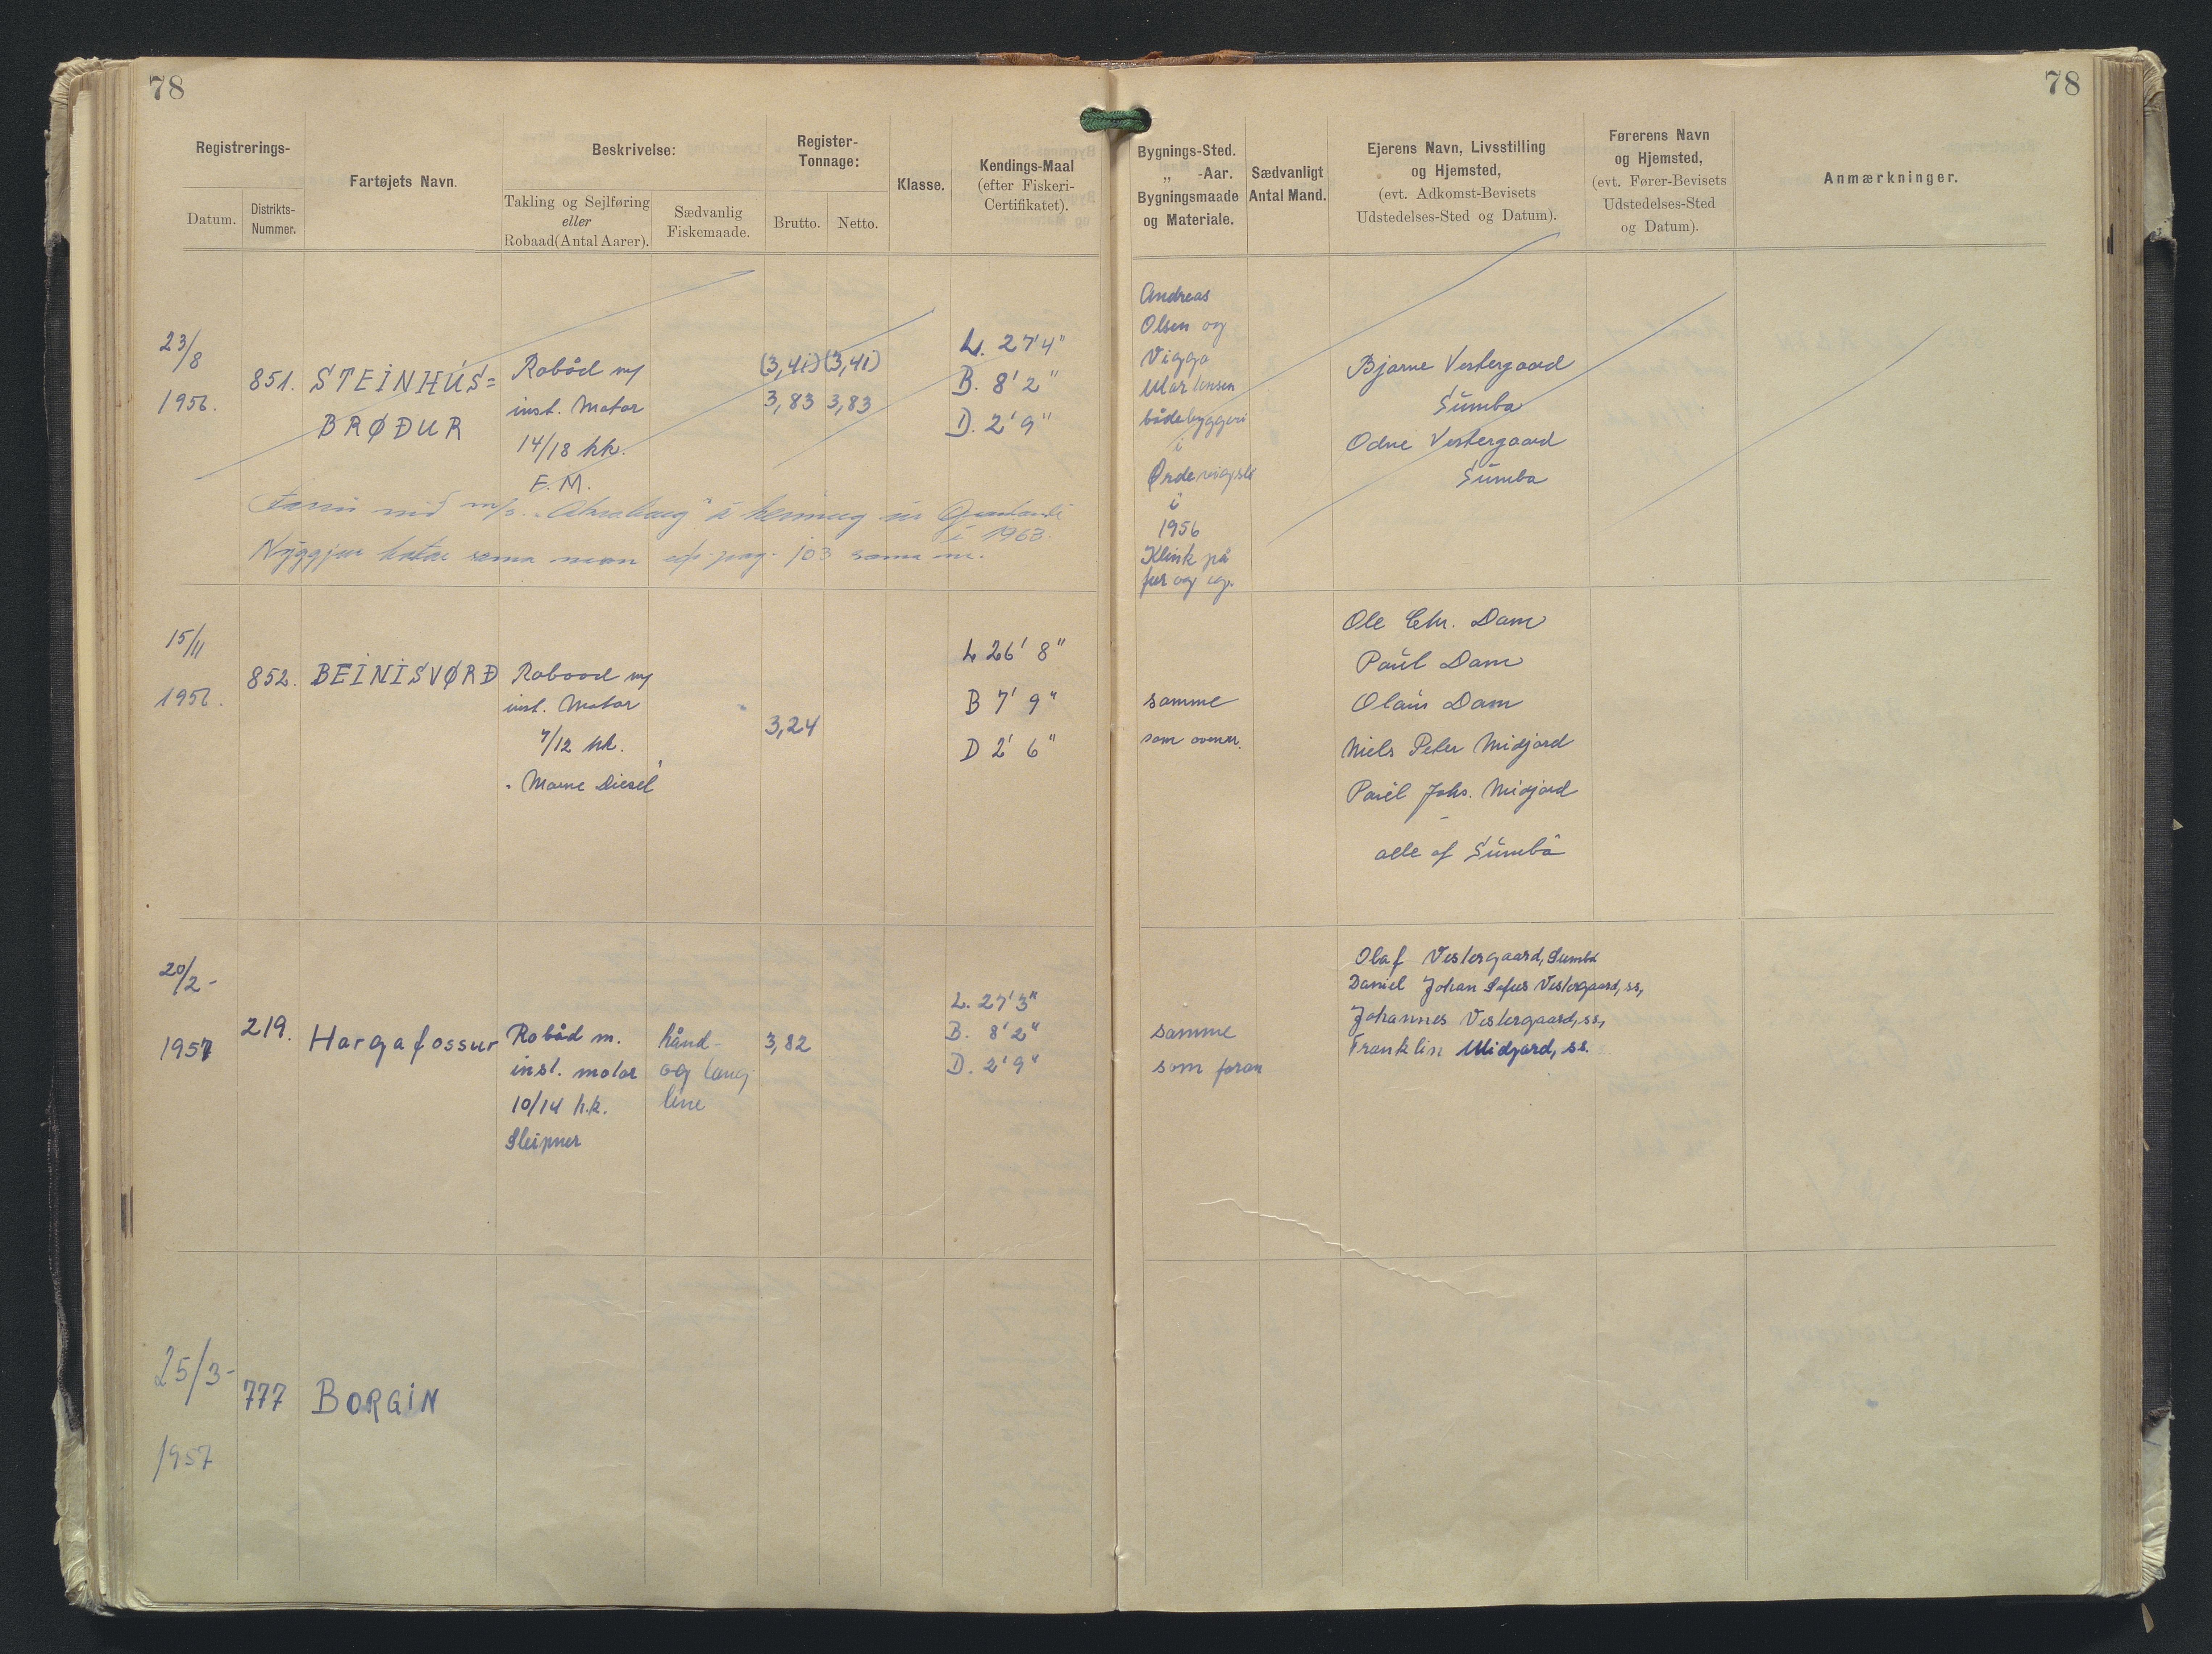 78
78
Registrerings-
Datum.
Distrikts-
Nummer.
Fartøjets Navn.
Beskrivelse:
Takling og Sejlføring
eller
Robaad (Antal Aarer).
Sædvanlig
Fiskemaade.
Register-
Tonnage:
Brutto.
Netto.
Klasse.
Kendings-Maal
(efter Fiskeri-
Certifikatet).
Bygnings-Sted.
„ -Aar.
Bygningsmaade
og Materiale.
Sædvanligt
Antal Mand.
Ejerens Navn, Livsstilling
og Hjemsted,
(evt. Adkomst-Bevisets
Udstedelses-Sted og Datum).
Førerens Navn
og Hjemsted,
(evt. Fører-Bevisets
Udstedelses-Sted
og Datum).
Anmærkninger.
23/8
1956.
851.
STEINHÚS=
BRØÐUR
Robåd m/
inst. Motor
14/18 hk.
F.M.
(3,41) (3,41)
3,83 3,83
L. 27'4"
B. 8'2"
D. 2'9"
Andreas
Olsen og
Viggo
Martensen
bådebyggeri
i
i
1956
Klink på
fur og eg.
Bjarne Vestergaard
Sumba
Odne Vestergaard
Sumba
m/s
í 1963.
pag. 103 sama nr.
15/11
1956.
852.
BEINISVØRÐ
Robaad m/
inst. Motor
7/12 hk.
"Marne Diesel"
3,24
L 26' 8"
B 7' 9"
D 2' 6"
samme
som
Ole Chr. Dam
Paul Dam
Dam
Niels Peter Midjord
Johs. Midjord
alle af Sumbø
20/2-
1957
219.
Hargafossur
Robåd m.
inst. motor
10/14 h.k.
Sleipner
hånd-
og lang
line
3,82
L. 27'3"
B. 8'2"
D. 2'9"
samme
som foran
Olaf Vestergaard, Sumba
Daniel Johan Sofus Vestergaard, ss,
Johannes Vestergaard, ss,
Franklin Midjord, ss.
25/3-
1957
777
BORGIN